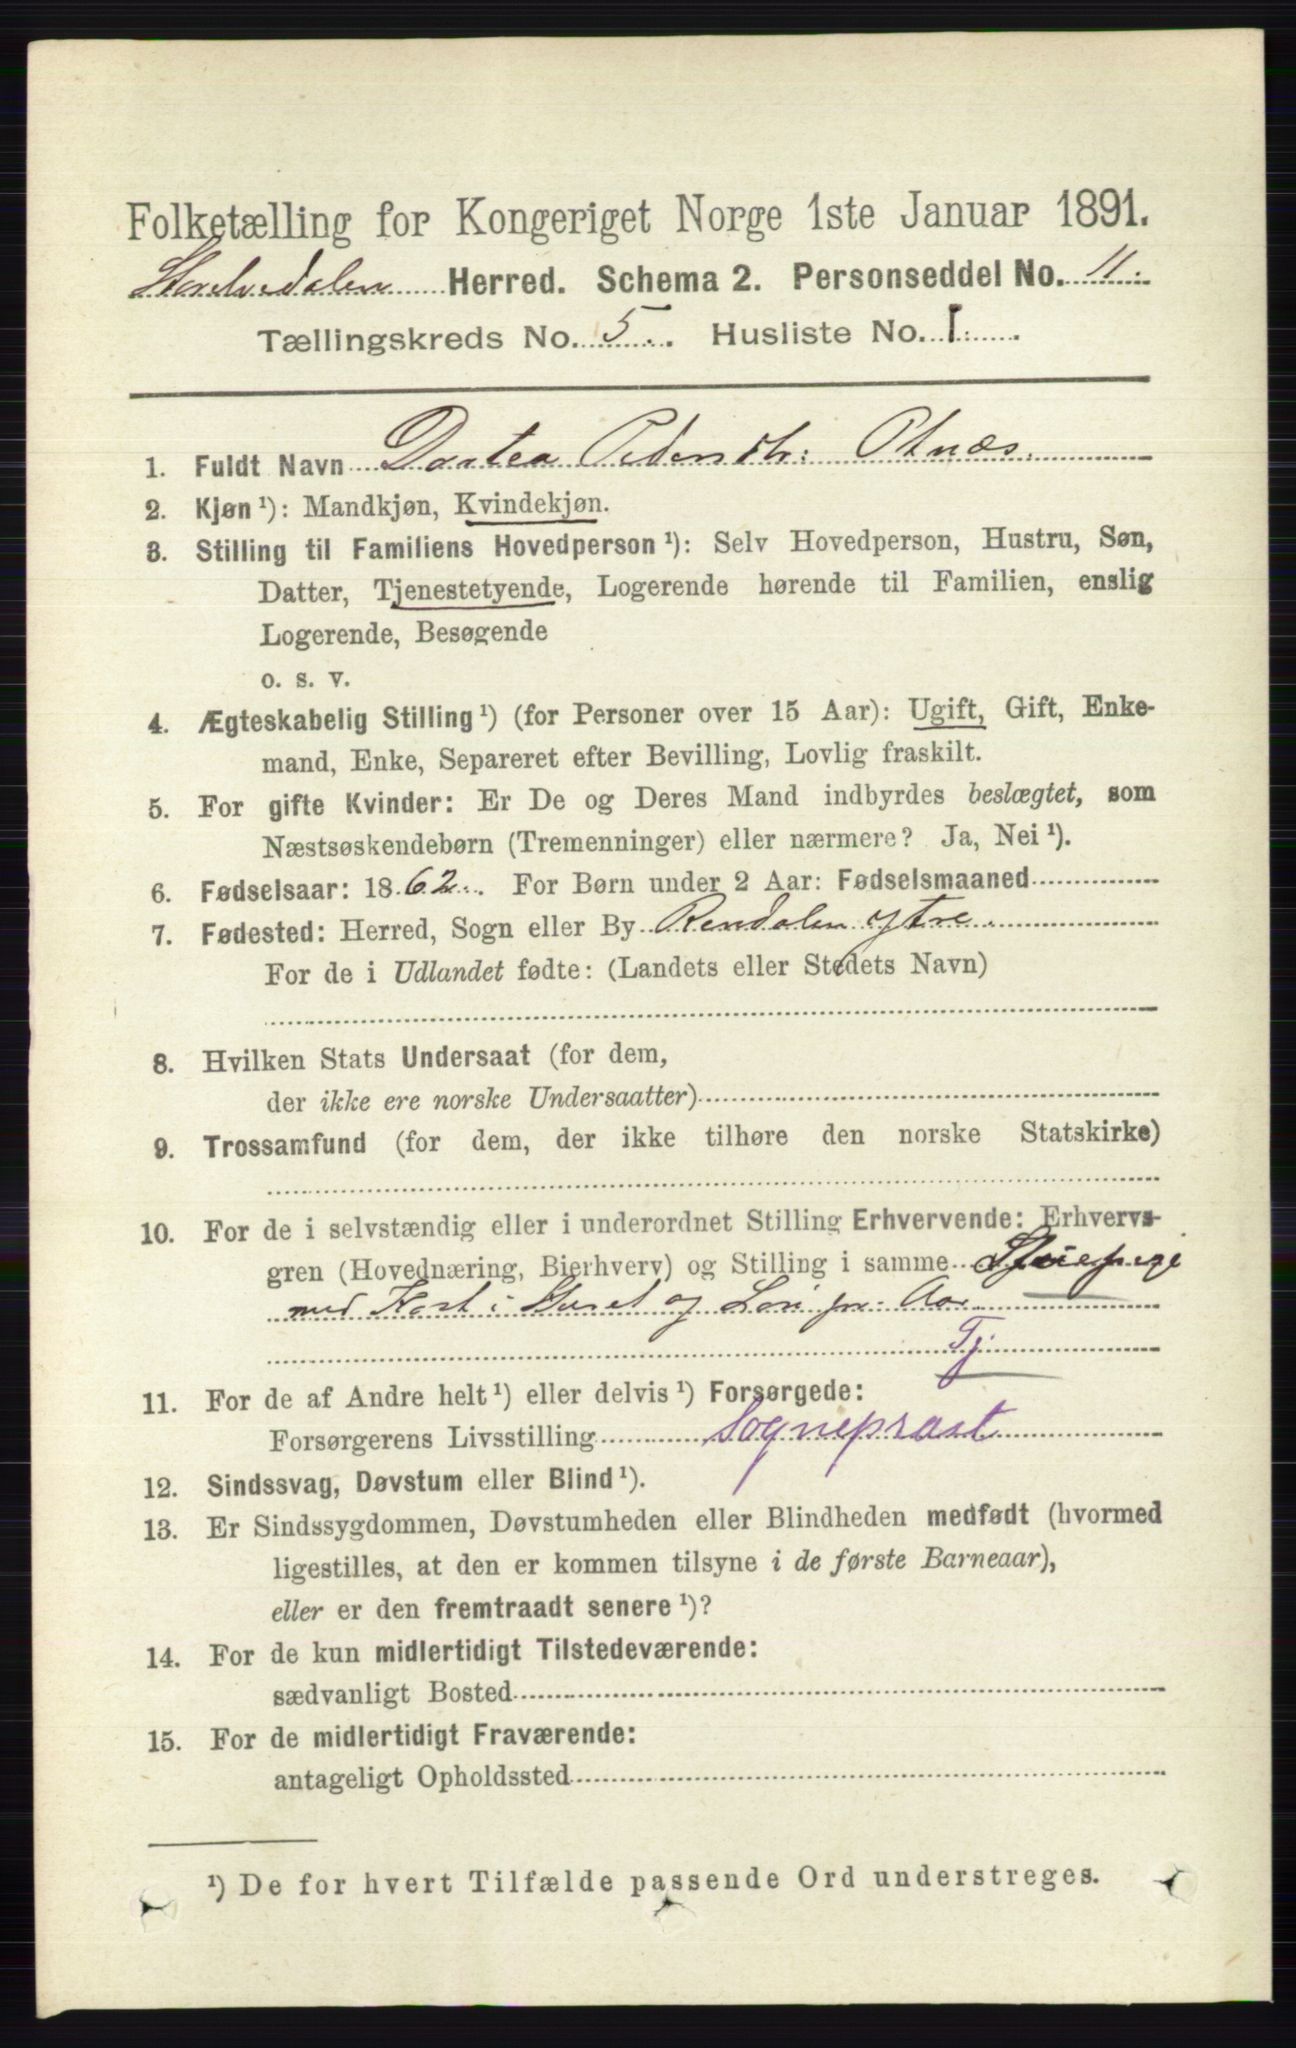 Folketælling for Kongeriget Norge 1ste Januar 1891.
Storelvedalen Herred. Schema 2. Personseddel No. 11.
Tællingskreds No. 5. Husliste No. 1.
1. Fuldt Navn Dortea Pedersdtr: Otnæs.
2. Kjøn ¹): Mandkjøn, Kvindekjøn.
3. Stilling til Familiens Hovedperson ¹): Selv Hovedperson, Hustru, Søn,
Datter, Tjenestetyende, Logerende hørende til Familien, enslig
Logerende, Besøgende
o. s. v.
4. Ægteskabelig Stilling ¹) (for Personer over 15 Aar): Ugift, Gift, Enke-
mand, Enke, Separeret efter Bevilling, Lovlig fraskilt.
5. For gifte Kvinder: Er De og Deres Mand indbyrdes beslægtet, som
Næstsøskendebørn (Tremenninger) eller nærmere? Ja, Nei ¹).
6. Fødselsaar: 1862. For Børn under 2 Aar: Fødselsmaaned
7. Fødested: Herred, Sogn eller By Rendalen ytre.
For de i Udlandet fødte: (Landets eller Stedets Navn)
8. Hvilken Stats Undersaat (for dem,
der ikke ere norske Undersaatter)
9. Trossamfund (for dem, der ikke tilhøre den norske Statskirke)
10. For de i selvstændig eller i underordnet Stilling Erhvervende: Erhvervs-
gren (Hovednæring, Bierhverv) og Stilling i samme
med Kost i Huset og Løn pr. Aar.
Tj.
11. For de af Andre helt ¹) eller delvis ¹) Forsørgede:
Forsørgerens Livsstilling Sognepræst
12. Sindssvag, Døvstum eller Blind ¹).
13. Er Sindssygdommen, Døvstumheden eller Blindheden medfødt (hvormed
ligestilles, at den er kommen tilsyne i de første Barneaar),
eller er den fremtraadt senere ¹)?
14. For de kun midlertidigt Tilstedeværende:
sædvanligt Bosted
15. For de midlertidigt Fraværende:
antageligt Opholdssted
¹) De for hvert Tilfælde passende Ord understreges.